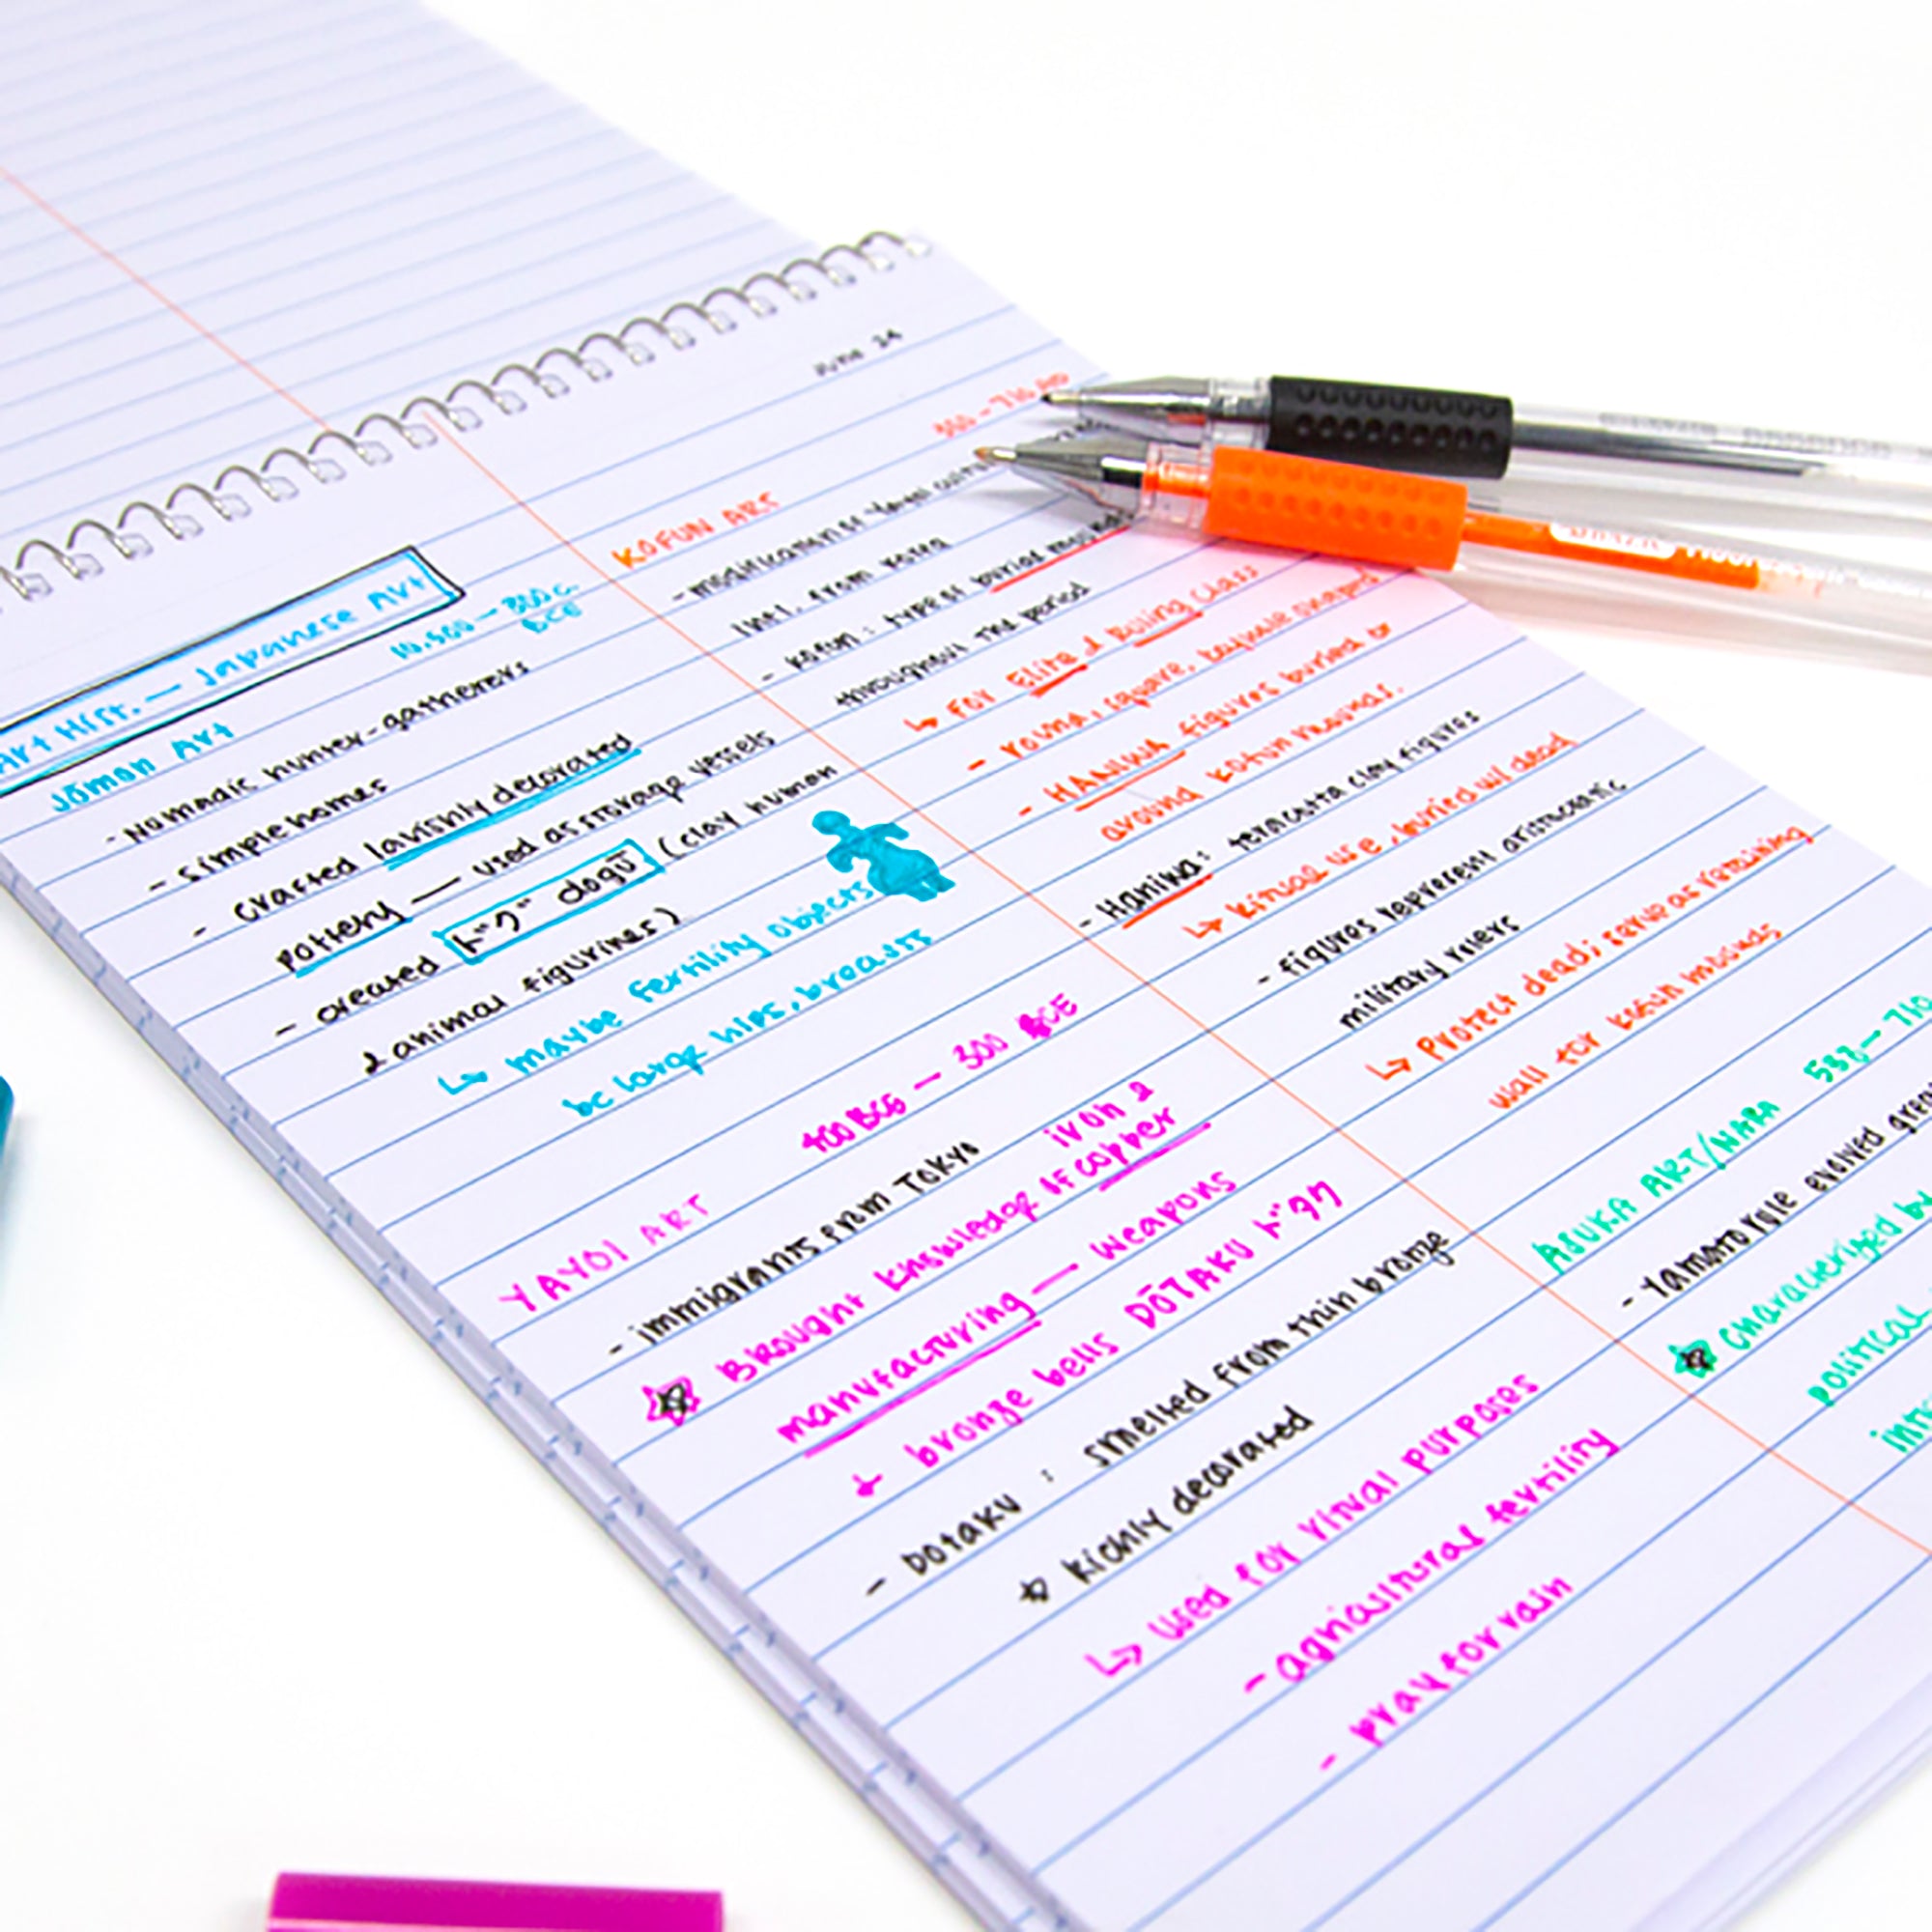 June 24
Art Hist. — Japanese Art
Jōmon Art 10,500 — 300 c. BCE
- Nomadic hunter-gatherers
- simple homes
- crafted lavishly decorated
pottery — used as storage vessels
- created ドグ" dogū (clay human
& animal figurines)
↳ maybe fertility objects
bc large hips, breasts
YAYOI ART 400 BCE — 300 BCE
- immigrants from Tokyo
☆ Brought knowledge of iron & copper
manufacturing — weapons
↓ bronze bells DŌTAKU ドグ
- Dotaku : smelted from thin bronze
☆ Richly decorated
↳ used for ritual purposes
- agricultural fertility
- pray for rain
KOFUN ARS 300 - 710 AD
- modification of Yayoi
Intl. from
- kofun : type of burial
throughout the period
↳ For Elite & Ruling Class
- round, square, keyhole shaped
- HANIWA figures buried or
around kofun mounds.
- Haniwa: terracotta clay figures
↳ Ritual use, buried w/ dead
- figures represent aristocratic
military
↳ Protect dead; serve as retaining
wall for kofun mounds
ASUKA ART/NARA 552 — 710
- Yamato rule evolved
☆ characterized by
political